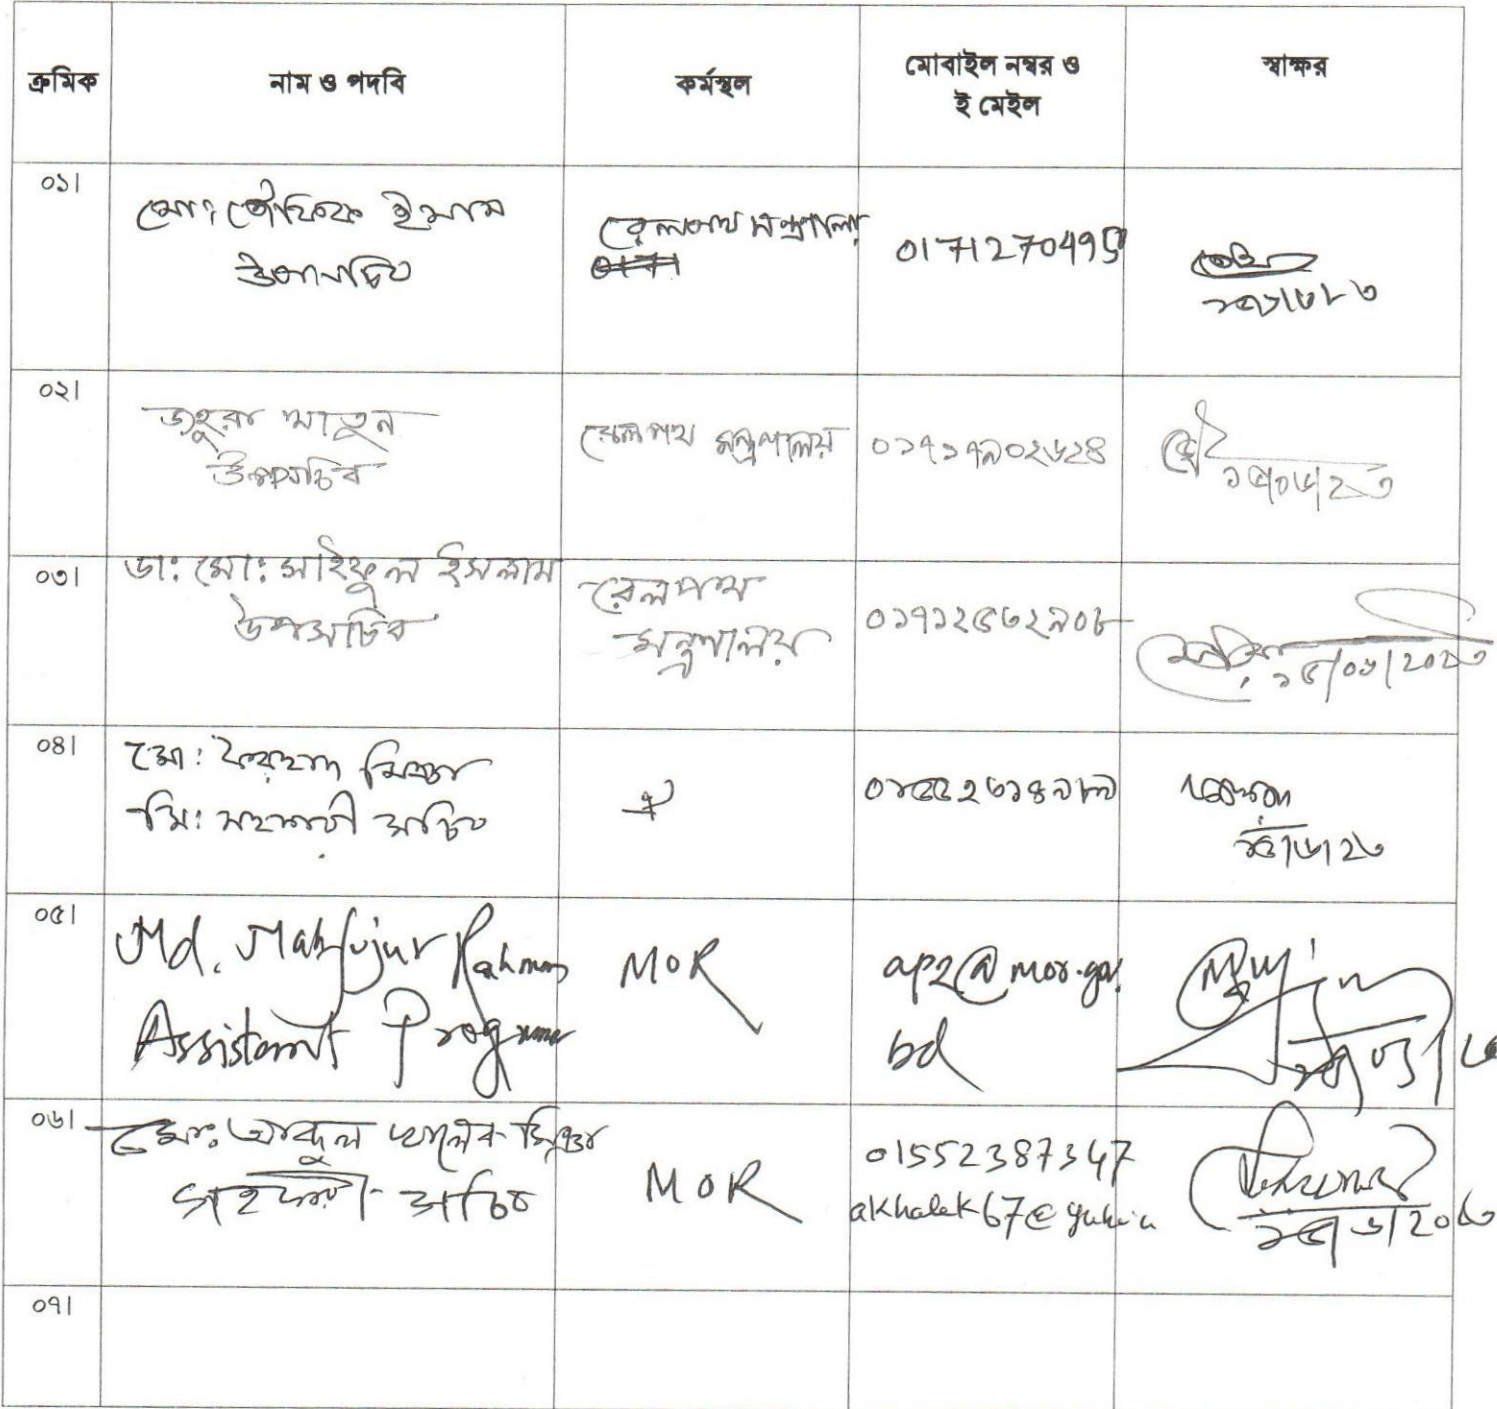 ক্রমিক
নাম ও পদবি
কর্মস্থল
মোবাইল নম্বর ও
ই মেইল
স্বাক্ষর
০১।
মো: তৌফিক ইমাম
উপসচিব
রেলপথ মন্ত্রণালয়
0171270495
০২।
জহুরা খাতুন
উপসচিব
রেলপথ মন্ত্রণালয়
০১৭১৭৯০২৬২৪
১৫/০৬/২৩
০৩।
ডা: মো: সাইফুল ইসলাম
উপসচিব
রেলপথ
মন্ত্রণালয়
০১৭১২৫৬২৯০৮
১৫/০৬/২০২৩
০৪।
মো: ফরহাদ মিঞা
সি: সহকারী সচিব
ঐ
১৫/৬/২৩
০৫।
Md. Mahfujur Rahman
Assistant Programmer
MOR
ap2@mor.gov.
bd
০৬।
মো: আব্দুল খালেক মিঞা
সহকারী সচিব
MOR
01552387347
১৫/৬/২০২৩
০৭।